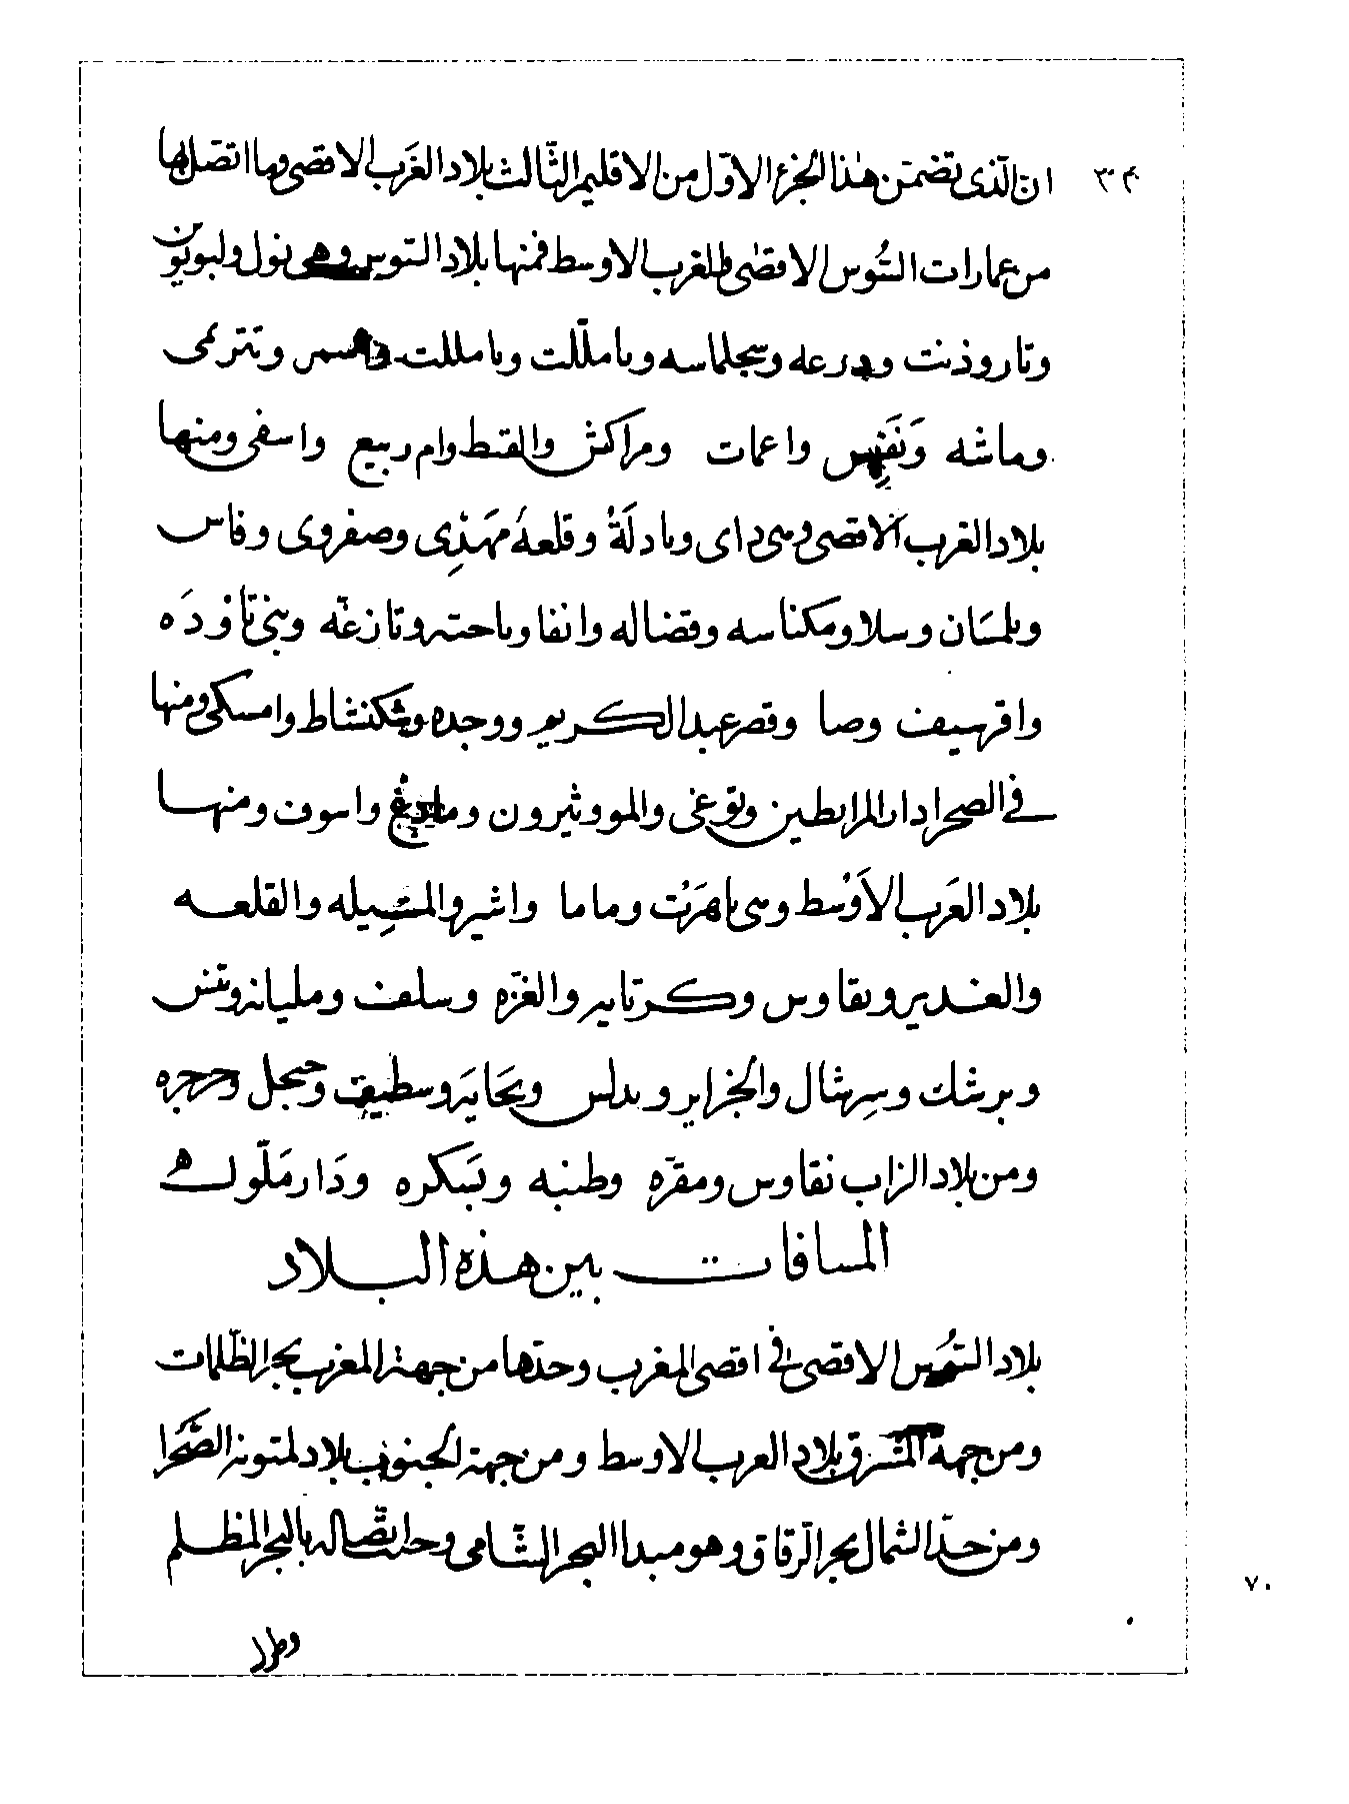 ان الّذى تضمّن هذا الجزء الاوّل من الاقليم الثّالث بلاد الغَرب الاقصى وما اتصّل بها
من عمارات السُّوس الاقصٰى والمغرب الاوسط فمنها بلاد السوس وهى نول ولبويوين
وتاروذنت ودرعه وسجلماسه وىاملّلت وىامللت وتترىمى
وماسّه وَنَفَيس واعمات ومراكش والقىط وام ربيع واسفى ومنها
بلاد الغرب الاقصى وهى داى وىادلَةُ وقلعهُ مَهَذِى وصفروى وفاس
وىلمسَان وسلا ومكناسه وقضاله وانفا وىاحسه وتازغّه وبنى تاوُدَه
واقرسيف وصا وقصر عبد الكريم ووجده وشكنشاط وامسكى ومنها
فى الصحرا دار المرابطين وتوغى والمووثيرون واسوف ومنها
بلاد الغَرب الاَوْسط وهى ىاهَرُت وماما واشير والمسِيله والقلعه
والغدير ونقاوس وكرتايه والغزّه وسلف ومليانه وتنس
وبرشك وسِرشال والجزاىر وىدلس وبجَايَه وسطيف وجيجل
ومن بلاد الزاب نقاوس ومقرّه وطبنه وبسَكره ودَار مَلّول
المسافات بين هذه البلاد
بلاد السُوس الاقصى فى اقصى المغرب وحدّها من جهة المغرب بحر الظّلمات
ومن جهة المشرق بلاد الغرب الاوسط ومن جهة الجنوب بلاد لمتونه الصَّحَرا
ومن حدّ الشمال بحر الزّقاق وهو مبدا البحر الشّامى وحيث اتّصاله بالبحر المظلم
٧٠